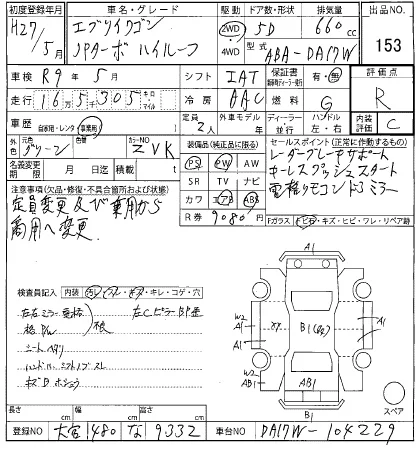 初度登録年月 車名・グレード 駆動 ドア数・形状 排気量 出品NO.
H27/5月 エブリイワゴン 2WD 5D 660cc 153
JPターボ ハイルーフ 4WD 型式 ABA-DA17W
車検 R9年5月 シフト IAT 保証書 有・無 評価点
走行 16万5千305 キロ マイル 冷房 AAC 燃料 G R
車歴 自家用・レンタ 事業用 定員 2人 外車モデル 年 ディーラー・並行 ハンドル 左・右 内装評価 C
外色 元色 グリーン 色替 カラーNO ZVK 装備品(純正品に限る) セールスポイント(正常に作動するもの)
名義変更期限 月 日 積載 t PS PW AW レーダーブレーキサポート
SR TV ナビ キーレスプッシュスタート
注意事項(欠品・修復・不具合箇所および状態) カワ エアB ABS 電格リモコンドアミラー
定員変更及び乗用から R券 9080円
商用へ変更 Fガラス トビ石・キズ・ヒビ・ワレ・リペア跡
検査員記入 内装 汚レ・スレ・キズ・キレ・コゲ・穴
シートヘタリ
A1
W2 A1 A1
XX B1 A1 A1
W2 AB1 AB1 A1
B1
スペア
長さ cm 幅 cm 高さ cm
登録NO 大宮 480 な 9332 車台NO DA17W-104229